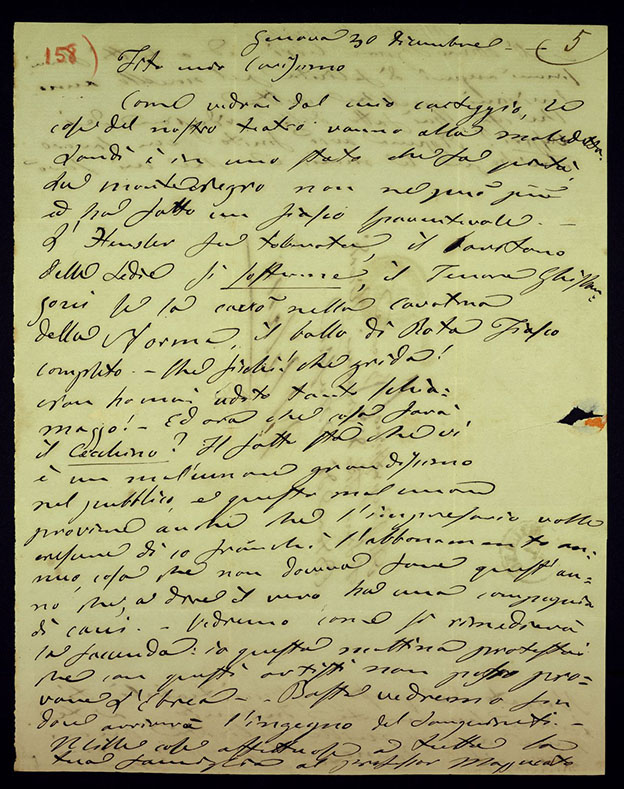 158)
Genova 30 Dicembre - - 5
Tito mio Carissimo
Come vedrai dal mio carteggio, le
cose del nostro teatro vanno alla maledetta.
Landi è in uno stato che fa pietà,
la montenegro non ne può più
ed ha fatto un fiasco spaventevole. -
L'Hensler fu tollerata, il baritono
delle Sedie si soffrirne, il Tenore Ghislan-
zoni se la cavò nella cavatina
della Norma, il ballo di Rota Fiasco
completo. - Che fischi! che grida!
non ho mai udito tanto schia-
mazzo! - Ed ora che cosa farà
il Cecchino? Il fatto stà che vi
è un mal'umore grandissimo
nel pubblico, e questo mal umore
proviene anche che l'impresario volle
crescere di 10 franchi l'abbonamento an-
nuo, cosa che non doveva fare quest'an-
no che, a dire il vero ha una compagnia
di cani. - Vedremo come si rimedierà
la faccenda: io questa mattina protestai
che con questi artisti non posso pro-
vare L'Ebrea - - Basta vedremo fin
dove arriverà l'ingegno del Sanguineti. -
Mille cose affettuose a tutta la
tua famiglia al professor Mazzucato